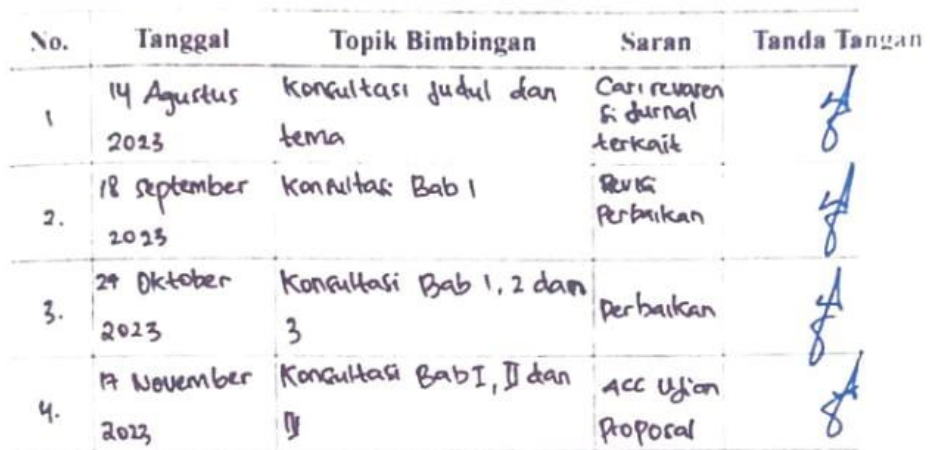 No. Tanggal Topik Bimbingan Saran Tanda Tangan
1 14 Agustus 2023 Konsultasi Judul dan tema Cari revaren si Jurnal terkait
2. 18 September 2023 Konsultasi Bab 1 Revisi Perbaikan
3. 2023 Oktober Konsultasi Bab 1, 2 dan 3 Perbaikan
4. 17 November 2023 Konsultasi Bab I, II dan ACC Ujian Proposal